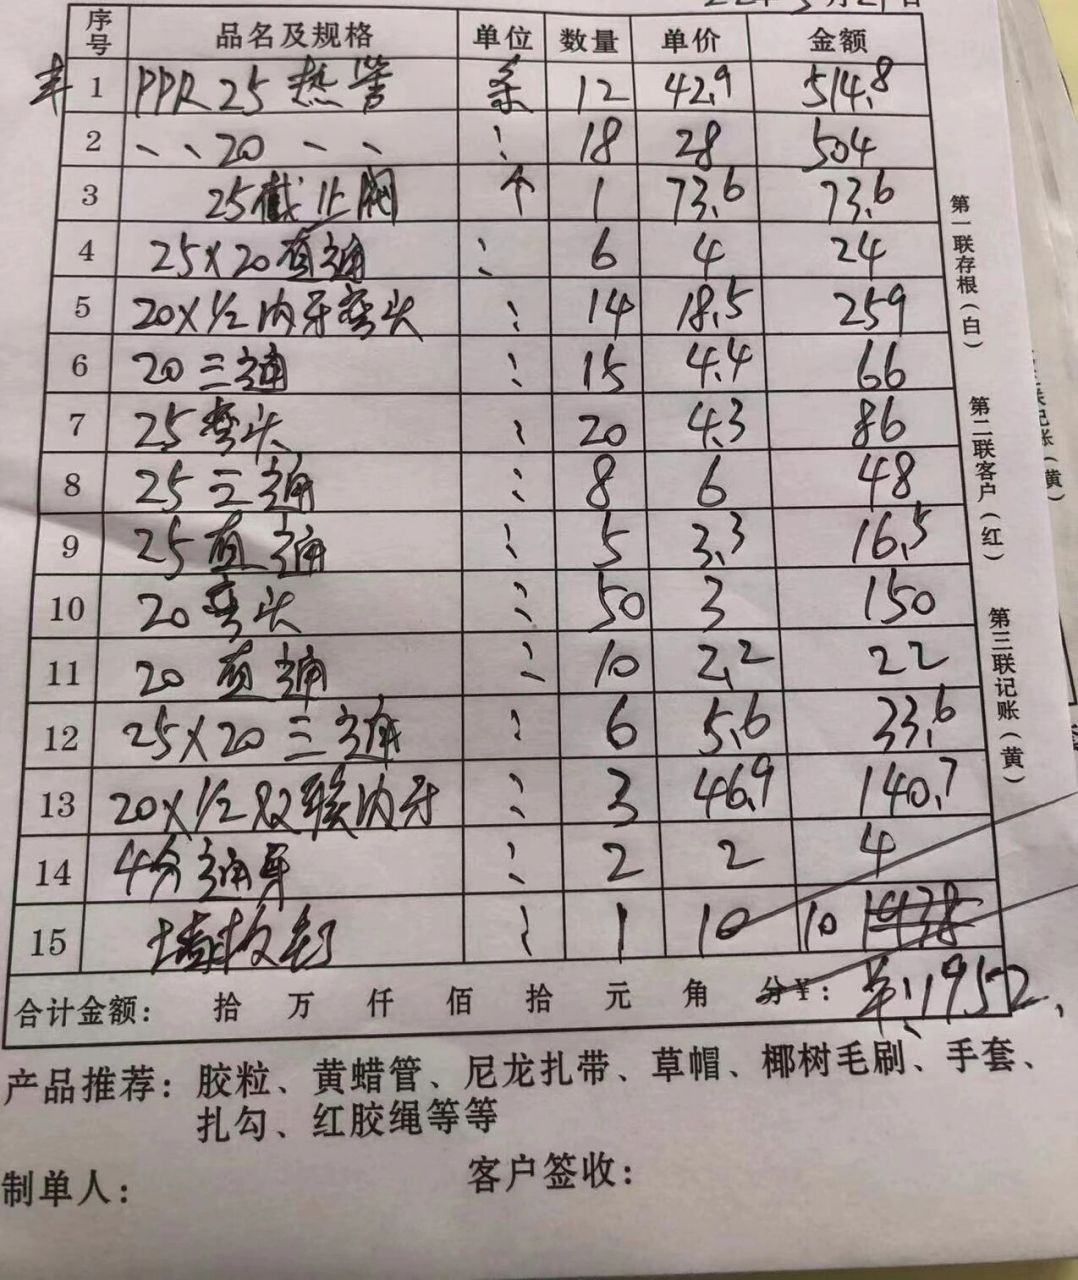 序号 品名及规格 单位 数量 单价 金额
1 PPR 25 热管 条 12 42.9 514.8
2 、、20 、、 : 18 28 504
3 25截止阀 个 1 73.6 73.6
4 25×20直通 : 6 4 24
5 20×1/2内牙弯头 : 14 18.5 259
6 20三通 : 15 4.4 66
7 25弯头 : 20 4.3 86
8 25三通 : 8 6 48
9 25直通 : 5 3.3 16.5
10 20弯头 : 50 3 150
11 20直通 : 10 2.2 22
12 25×20三通 : 6 5.6 33.6
13 20×1/2双联内牙 : 3 46.9 140.7
14 4分通牙 : 2 2 4
15 : 1 10 10
合计金额: 拾 万 仟 佰 拾 元 角 分¥: 1952
产品推荐:胶粒、黄蜡管、尼龙扎带、草帽、椰树毛刷、手套、
扎勾、红胶绳等等
制单人: 客户签收:
第一联存根(白)
第二联客户(红)
第三联记账(黄)
联记账(黄)